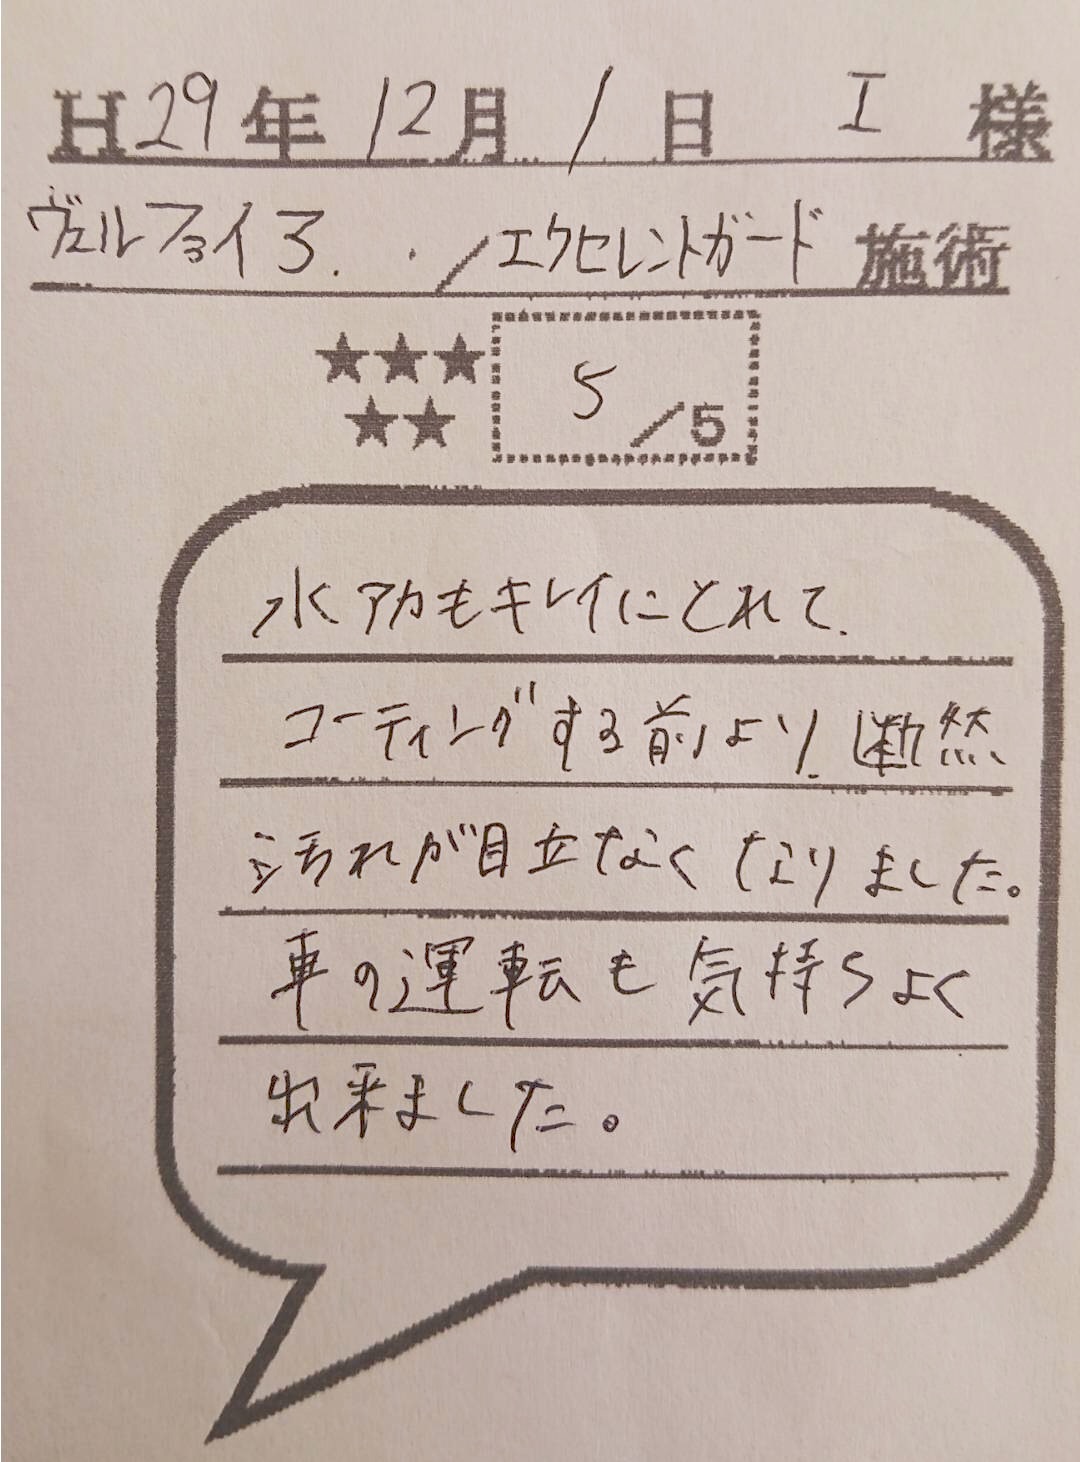 H29年 12月 1日 I 様
ヴェルファイア. ・/エクセレントガード 施術
★★★
★★
5/5
水アカもキレイにとれて、
コーティングする前より、断然
汚れが目立なくなりました。
車の運転も気持ちよく
出来ました。